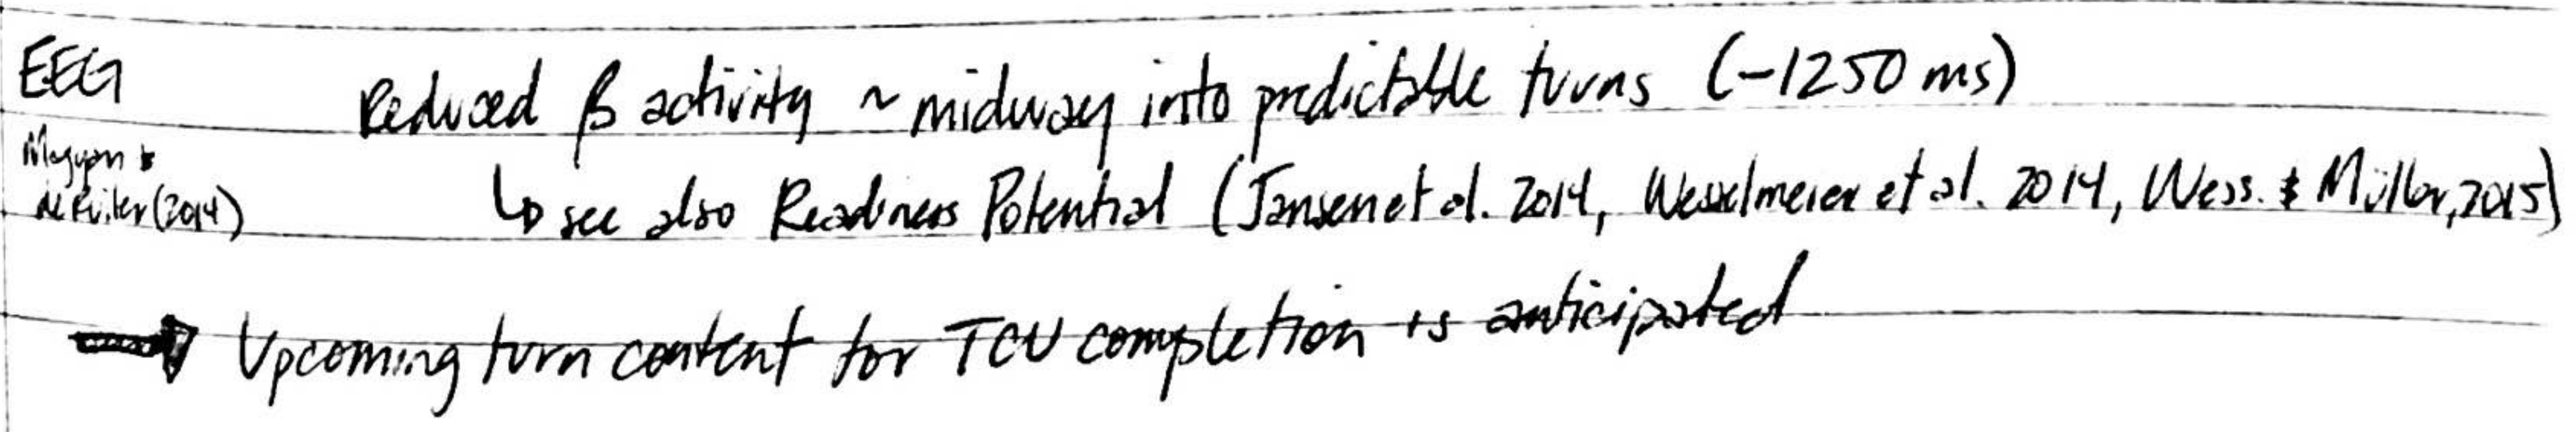 EEG
Reduced β activity ~ midway into predictable turns (-1250 ms)
Magyari &
de Ruiter (2014)
↳ see also Readiness Potential (Jansen et al. 2014, Wesselmeier et al. 2014, Wess. & Müller, 2015)
→ Upcoming turn content for TCU completion is anticipated